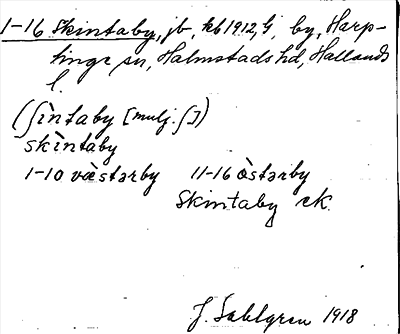 1-16 Skintaby, jb, kb 1912, G, by, Harp-
linge sn, Halmstads hd, Hallands
l.
(ʃìntaby [mulj. ʃ])
skìntaby
1-10 væ̀stərby 11-16 òstərby
Skintaby ek.
J. Sahlgren 1918